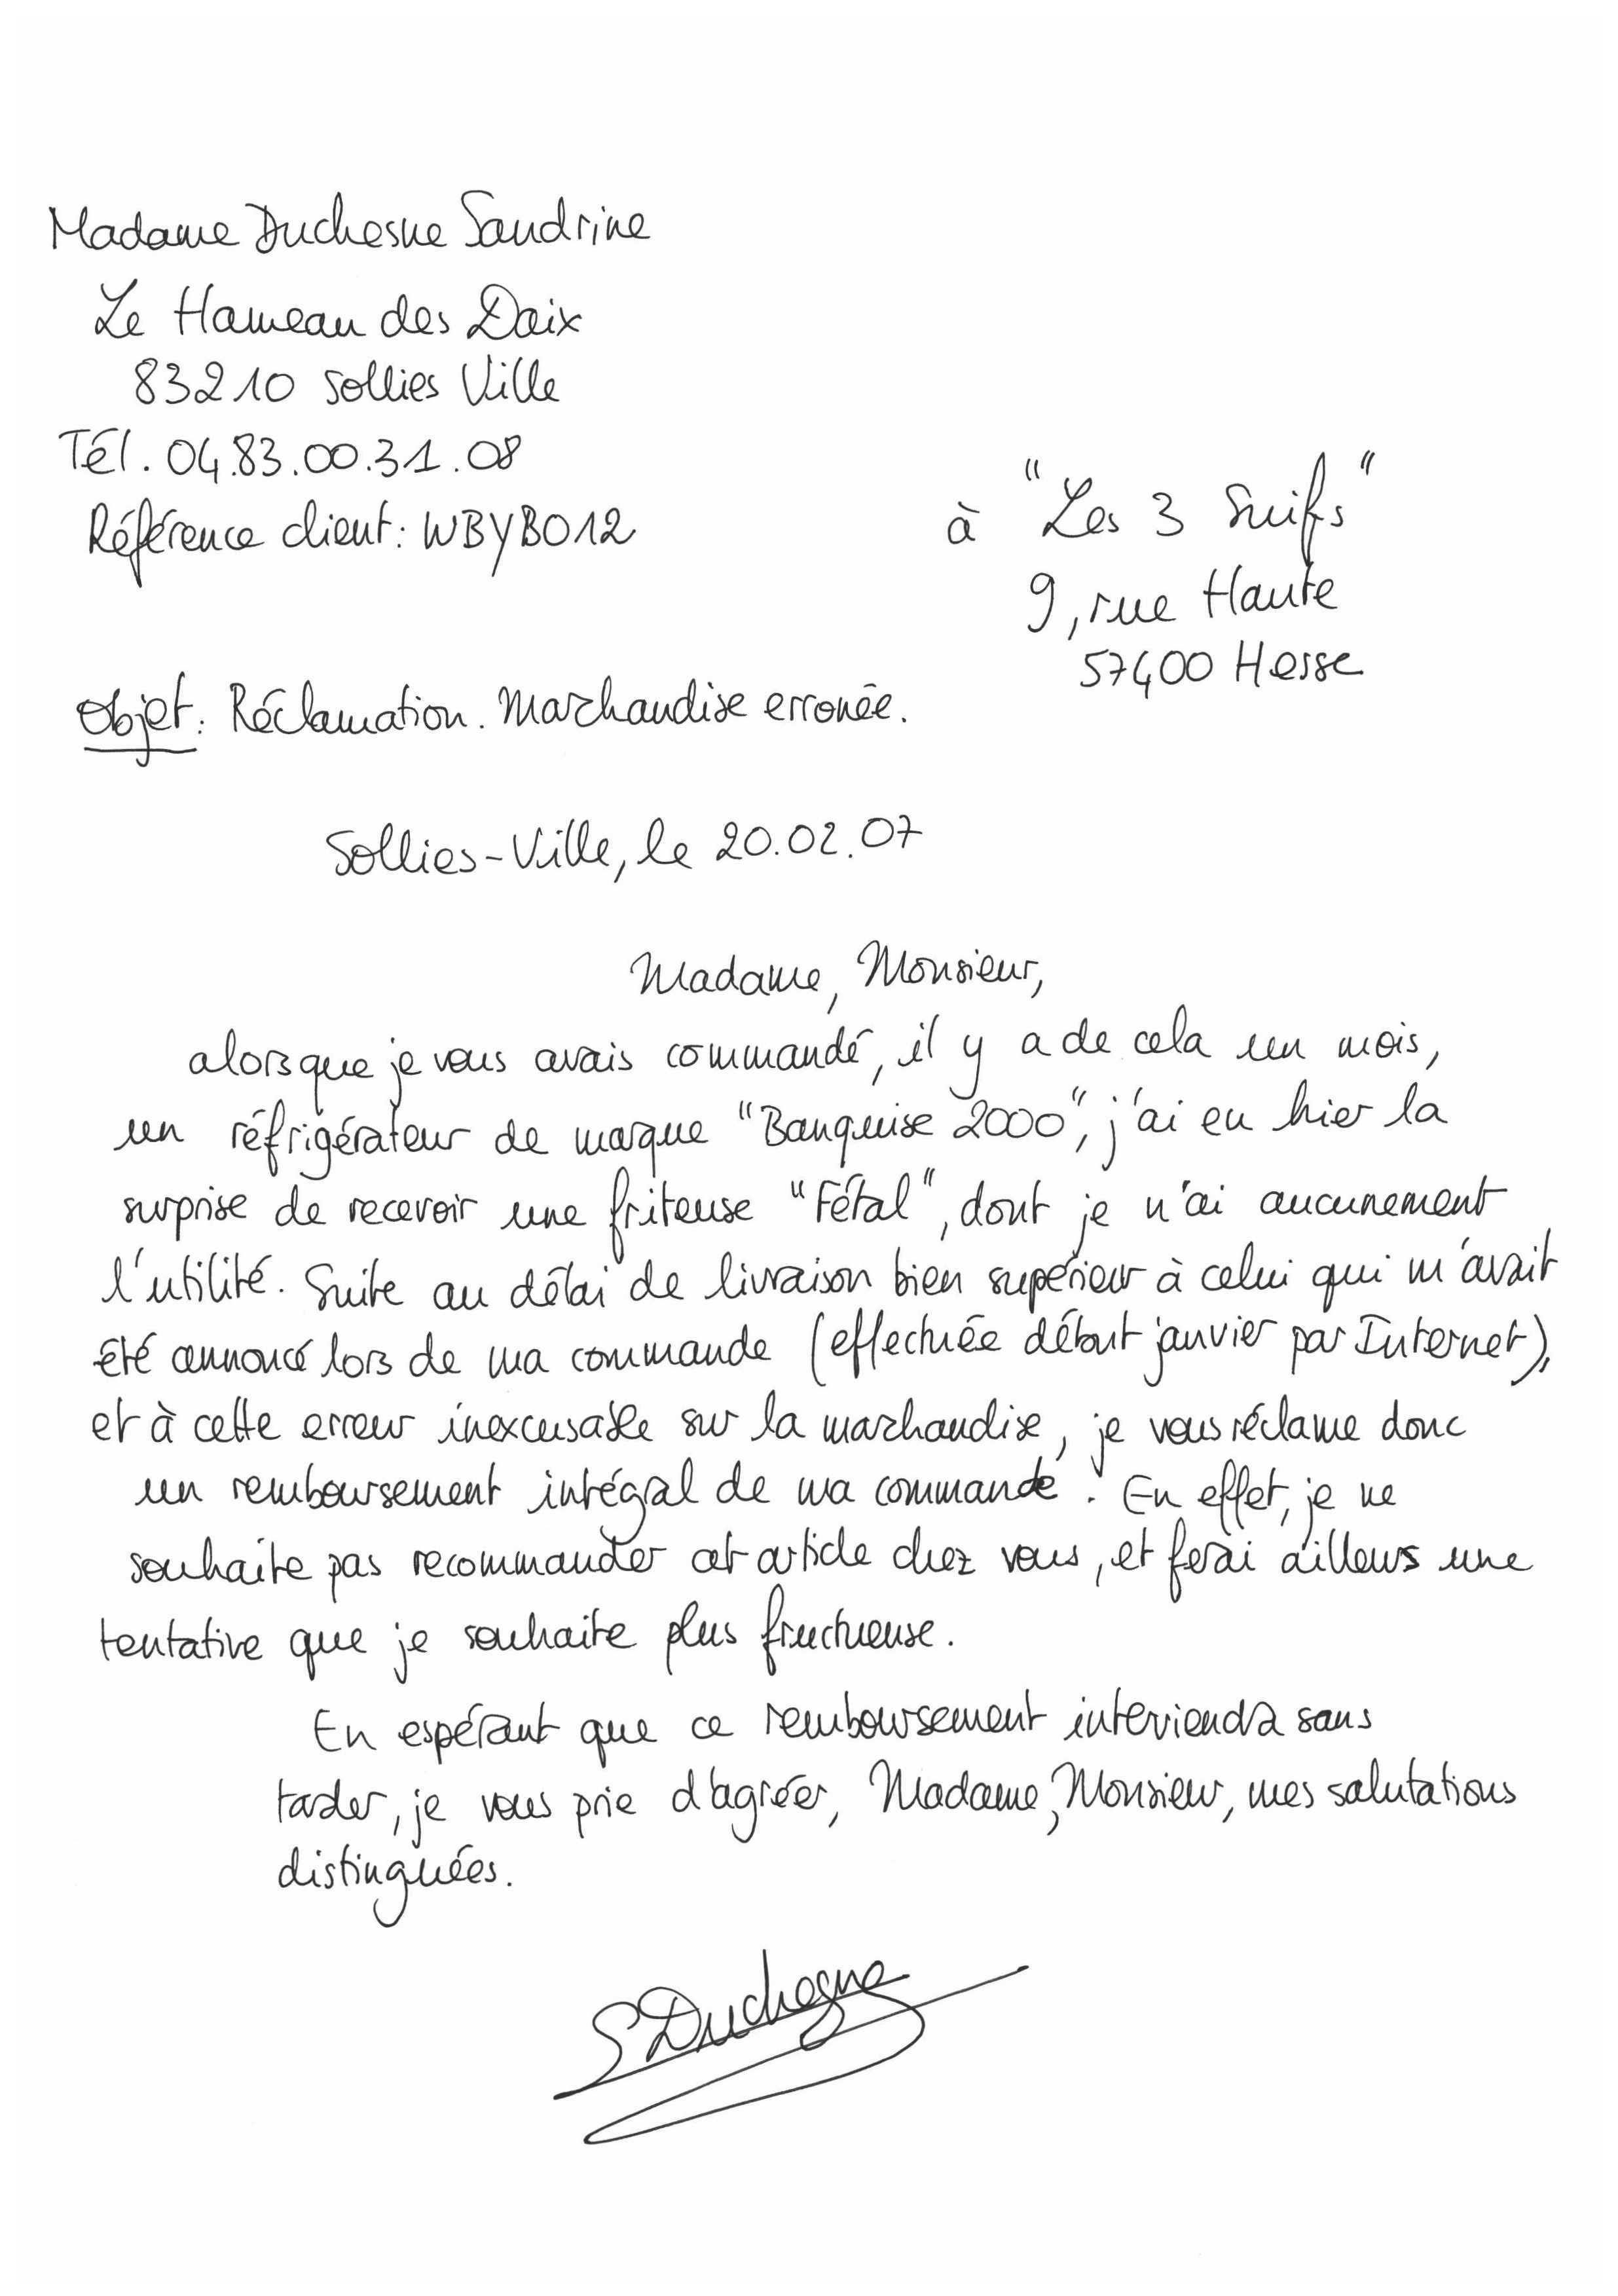 Madame Duchesne Sandrine
Le Hameau des Daix
83210 Sollies Ville
Tél. 04.83.00.31.08
Référence client: WBYBO12
à "Les 3 Suifs"
9, rue Haute
57400 Hesse
Objet: Réclamation. Marchandise erronée.
Sollies-Ville, le 20.02.07
Madame, Monsieur,
alorsque je vous avais commandé, il y a de cela un mois,
un réfrigérateur de marque "Banquise 2000", j'ai eu hier la
surprise de recevoir une friteuse "Fétal", dont je n'ai aucunement
l'utilité. Suite au délai de livraison bien supérieur à celui qui m'avait
été annoncé lors de ma commande (effectuée début janvier par Internet),
et à cette erreur inexcusable sur la marchandise, je vous réclame donc
un remboursement intégral de ma commande. En effet, je ne
souhaite pas recommander cet article chez vous, et ferai ailleurs une
tentative que je souhaite plus fructueuse.
En espérant que ce remboursement interviendra sans
tarder, je vous prie d'agréer, Madame, Monsieur, mes salutations
distinguées.
S Duchesne